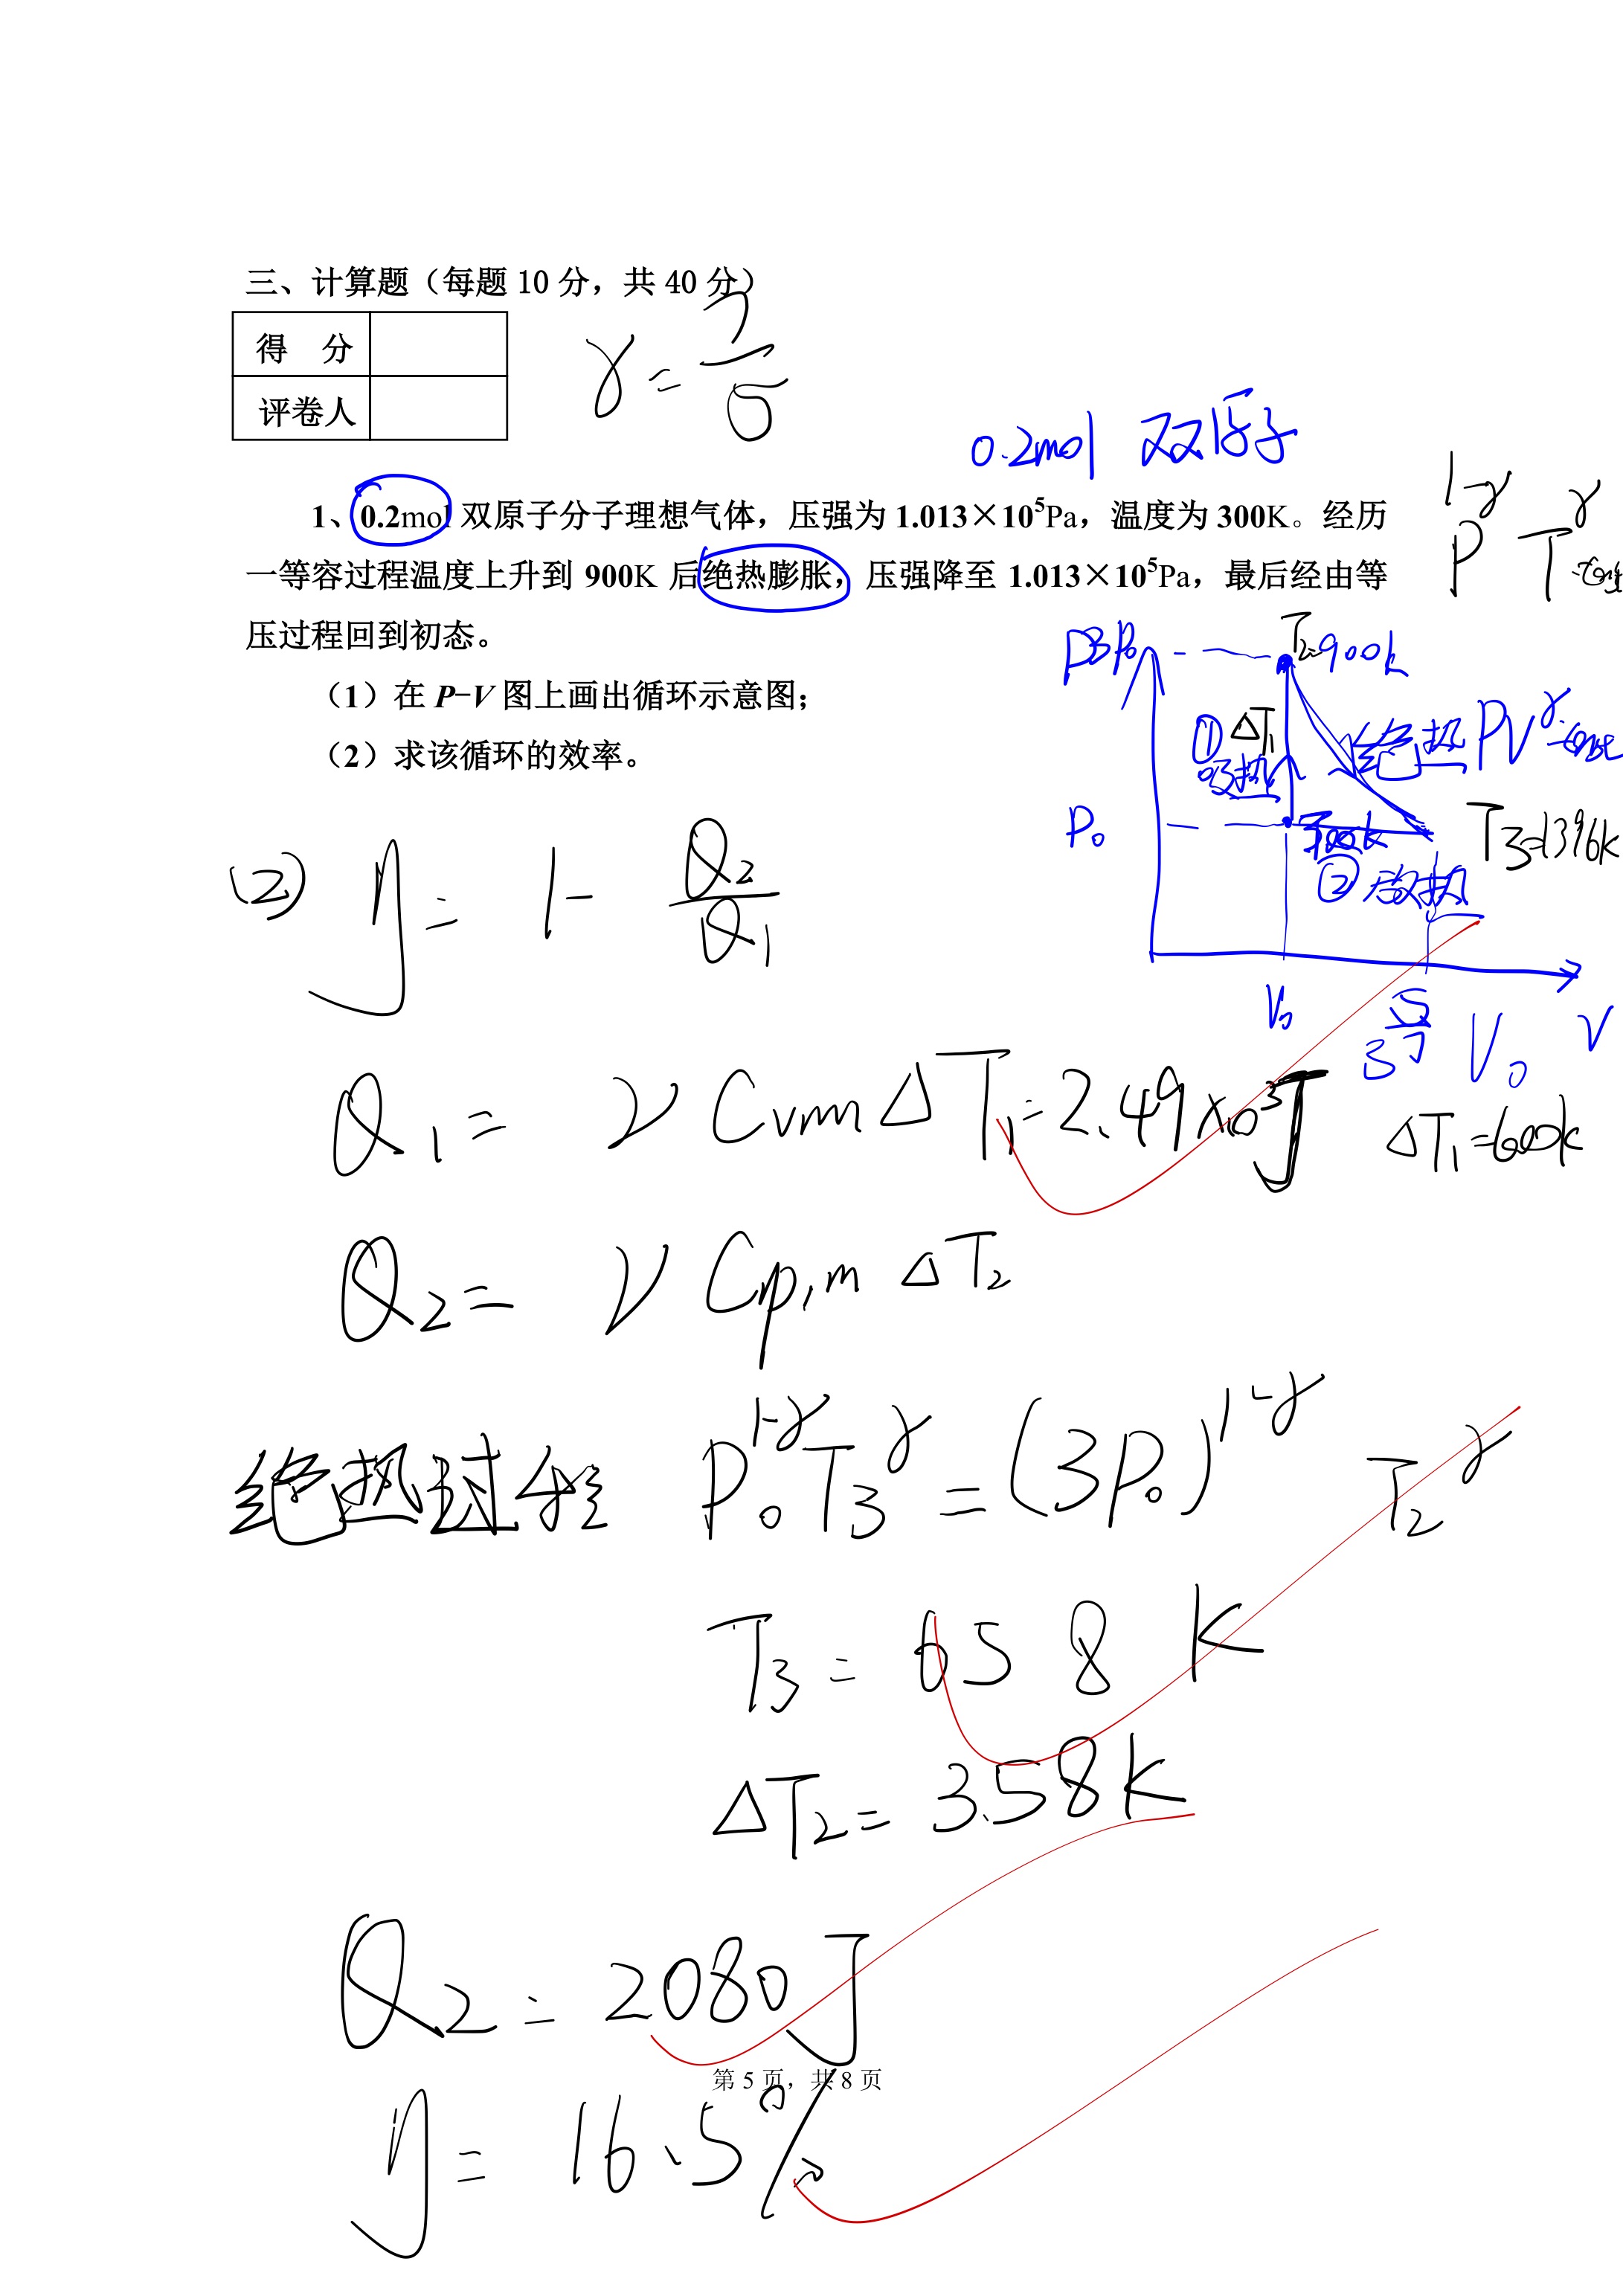 三、计算题（每题 10 分，共 40 分）
得 分
评卷人
γ = 7/5
0.2mol 双原子
1、0.2mol 双原子分子理想气体，压强为 1.013×10⁵Pa，温度为 300K。经历
一等容过程温度上升到 900K 后绝热膨胀，压强降至 1.013×10⁵Pa，最后经由等
压过程回到初态。
（1）在 P−V 图上画出循环示意图；
（2）求该循环的效率。
P^(1-γ) T^γ =const
P 3P₀ T₂=900k
① ΔT₁ 吸热
绝热 PV^γ=const
P₀ 300k T₃=1396k
② 放热
V₀ V₀ V
ΔT₁=600k
(2) η = 1 - Q₂/Q₁
Q₁ = ν Cvm ΔT₁ = 2.49×10³J
Q₂ = ν Cp,m ΔT₂
绝热过程 P₀^(1-γ) T₃^γ = (3P₀)^(1-γ) T₂^γ
T₃ = 658 K
ΔT₂ = 3.58K
Q₂ = 2080J
第 5 页，共 8 页
η = 16.5%